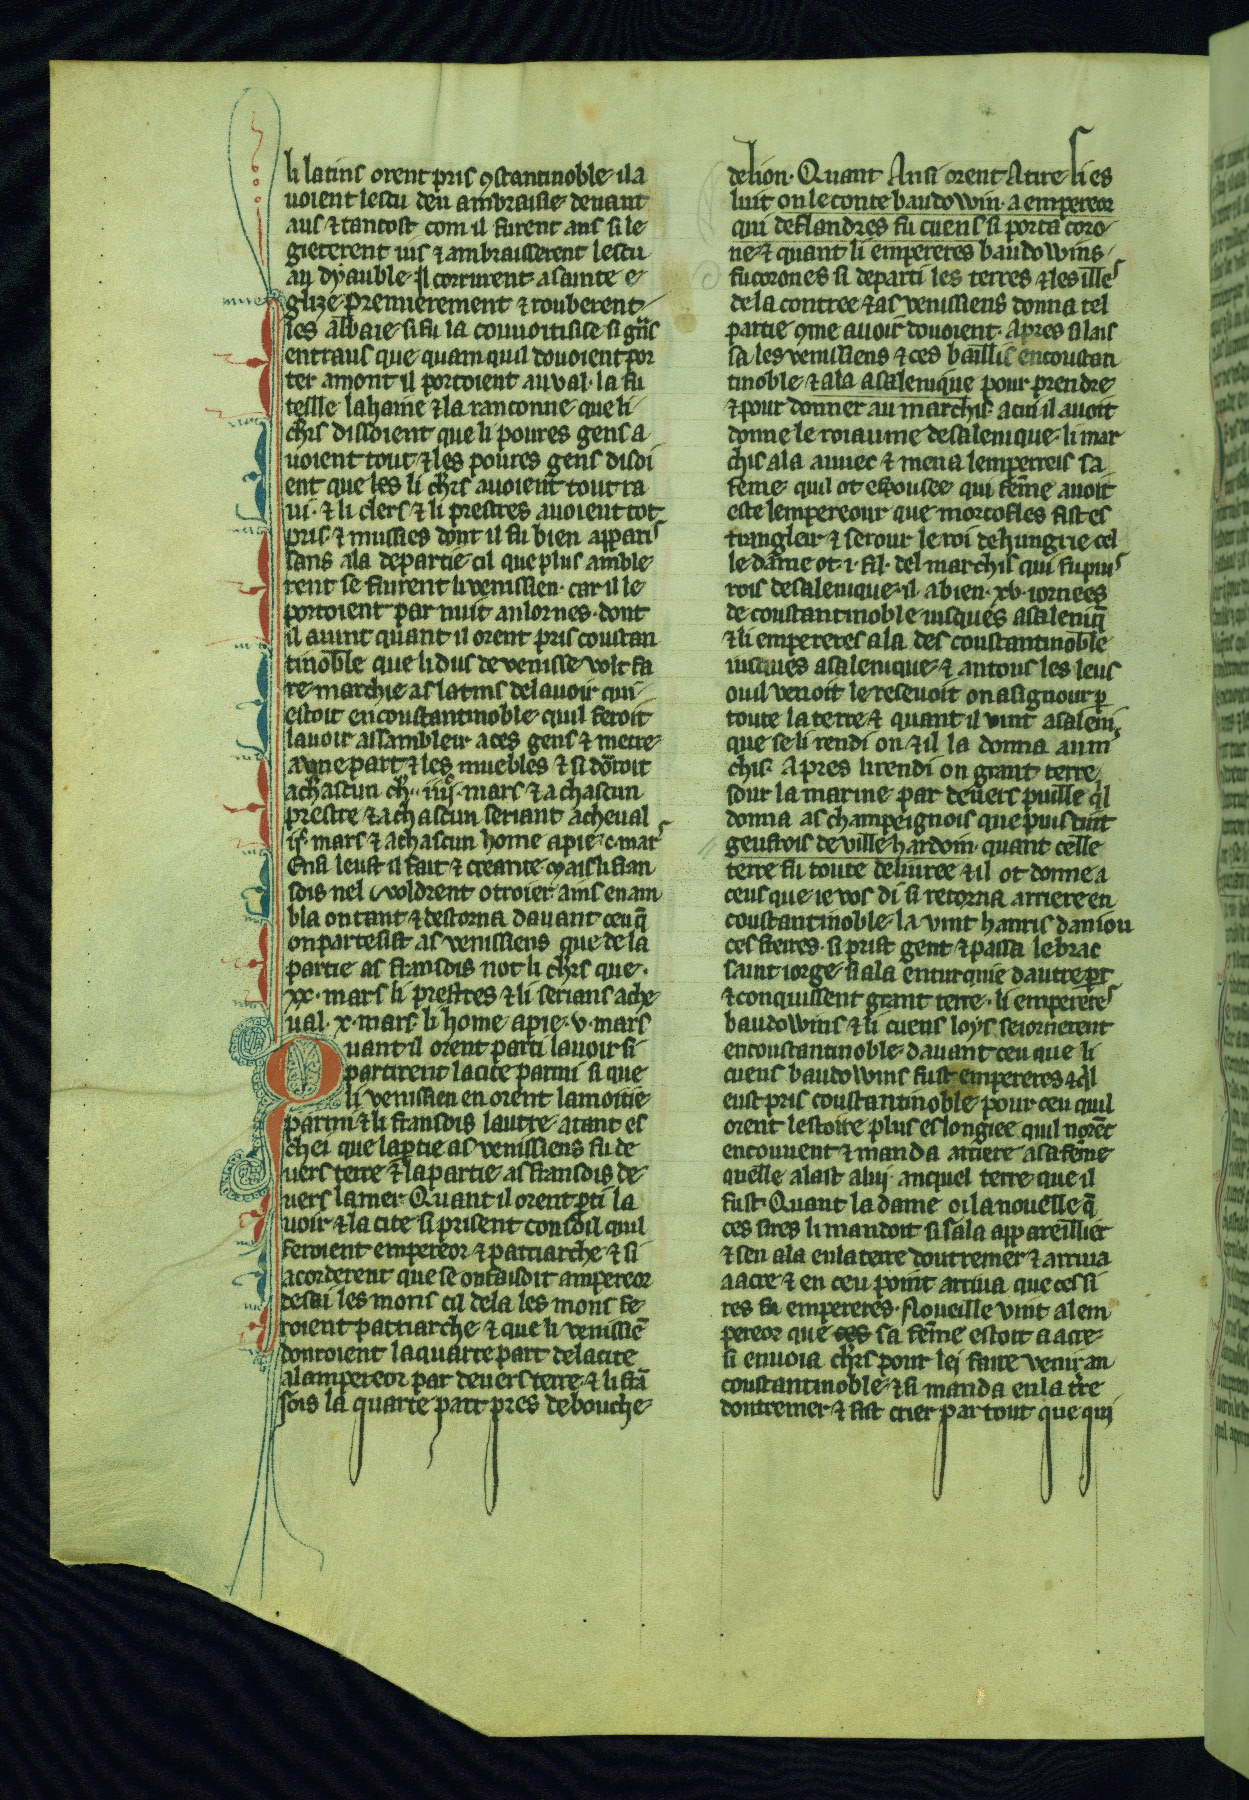 li latins orent pris ꝯstantinoble· il a
uoient lescu deu ambraissie deuant
aus ⁊ tantost com il furent ans si le
gieterent ius ⁊ ambraisserent lescu
au dyauble· Il corrurent a sainte e
glize premierement ⁊ rouberent
les abbaies· si fu la couuoitisise si gñs
entraus que quam quil douoient por
ter amont il portoient au val· la fu
teille la haine ⁊ la ranconne que li
chr̃s dissoient que li poures gens a
uoient tout ⁊ les poures gens disoi
ent que les li chr̃s auoient tout ra
ui· ⁊ li clers ⁊ li prestres auoient tot
pris ⁊ mussies dont il fu bien apparis
sans a la departie· cil que plus amble
rent se furent li venissien· car il le
portoient par nuit an lor nes· dont
il auint quant il orent pris coustan
tinoble que li dus de venisse volt fa
re marchie as latins de lauoir qui
estoit en coustantinoble· quil feroit
lauoir assambleir a ces gens ⁊ metre
a vne part ⁊ les muebles ⁊ si dõroit
a chascun chr̃· iiijᶜ mars ⁊ a chascun
prestre ⁊ a chascun seriant a cheual
ijᶜ mars ⁊ a chascun home a pie· c· mars
Ensi leust il fait ⁊ creante· mais li fran
sois nel woldrent otroier· ains en am
bla on tant ⁊ destorna dauant ceu q̃
on partesist as venissiens que de la
partie as fransois not li chr̃s que·
xx· mars li prestres ⁊ li serians a che
ual· x· mars· li home a pie· v· mars
Quant il orent parti lauoir si
partirent la cite parmi si que
li venissien en orent la moitie
parmi ⁊ li fransois lautre· atant es
chei que la ꝑtie as venissiens fu de
uers terre ⁊ la partie as fransois de
uers la mer· Quant il orent ꝑti la
uoir ⁊ la cite si prisent consoil quil
feroient empereor ⁊ patriarche ⁊ si
acorderent que se on faisoit ampereor
desai les mons cil de la les mons fe
roient patriarche· ⁊ que li venissiẽ
donroient la quarte part de la cite
a lampereor par deuers terre· ⁊ li frã
sois la quarte part pres de bouche
de lion· Quant Ansi orent Atire si es
luit on le conte baudowin· a empereor
qui de flandres fu cuens si porta coro
ne· ⁊ quant li empereres baudowins
fu corones si departi les terres ⁊ les illes
de la contree ⁊ as venissiens donna tel
partie ꝯme auoir douoient· Apres si lais
sa les venissiens ⁊ ces baillis en coustan
tinoble· ⁊ ala a salenique pour prendre
⁊ pour donner au marchis· a cui il auoit
donne le roiaume de salenique· li mar
chis ala auuec ⁊ mena lemperreis sa
feme· quil ot espousee qui feme auoit
este lempereour que mortofles fist es
trangleir ⁊ serour le roi de hungrie· cel
le dame ot· i· fil· del marchis qui fu puis
rois de salenique· il a bien· xv· iornees
de coustantinoble iusques a saleniq̃
⁊ li empereres ala des coustantinoble
iusques a salenique· ⁊ an tous les leus
ou il venoit le reseuoit on a signour ꝑ
toute la terre ⁊ quant il vint a saleni
que se li rendi on ⁊ il la donna au m
chis· Apres li rendi on grant terre
sour la marine· par deuers puille q̃l
donna as champeignois que puis tint
geufrois de ville hardoin· quant celle
terre fu toute deliuree ⁊ il ot donne a
ceus que ie vos di si retorna arriere en
coustantinoble· la vint hanris daniou
ces freres· si prist gent ⁊ passa le brac
saint iorge· si ala en turquie dautre ꝑt
⁊ conquissent grant terre· li empereres
baudowins ⁊ li cuens loys seiornerent
en coustantinoble· dauant ceu que li
cuens baudowins fust empereres ⁊ q̃l
eust pris coustantinoble· pour ceu quil
orent lestoire plus eslongiee quil norẽt
en couuent ⁊ manda arriere a sa feme
quelle alast a luj· an quel terre que il
fust· Quant la dame oi la nouelle q̃
ces sires li mandoit si sala appareillier
⁊ sen ala en la terre doutremer ⁊ arriua
a acre· ⁊ en ceu point arriua que ces si
res fu empereres· Noueille vint a lem
pereor que ces sa feme estoit a acre
si enuoia chr̃s pour lej faire venir an
coustantinoble· ⁊ si manda en la tr̃re
doutremer ⁊ fist crier par tout que qui